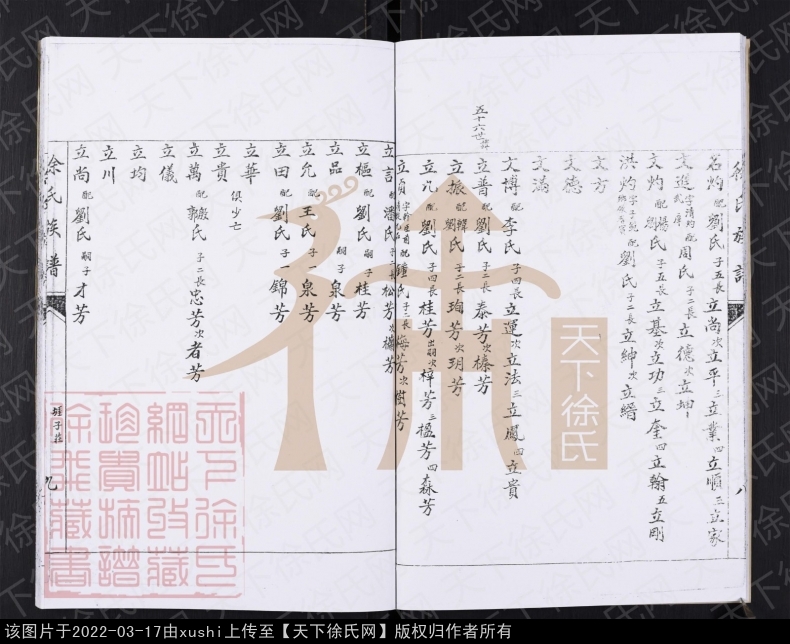 徐氏族譜
名灼 配劉氏 子五長立尚次立平三立業四立順三立家
文進 字清灼 武庠 配周氏 子二長立德次立坤
文灼 配楊氏 子五長立基次立功三立奎四立翰五立剛
洪灼 配劉氏 子二長立紳次立縉
文方
文德
文滿
文博 配李氏 子四長立運次立法三立鳳四立貴
五十六世
立普 配劉氏 子二長泰芳次榛芳
立振 配韓劉氏 子二長珣芳次玥芳
立凡 配劉氏 子四長桂芳出嗣次梓芳三楹芳四森芳
立貞 配鍾氏 子二長梅芳次樹芳
立言 配潘氏 子二長松芳次椿芳
立樞 配劉氏 嗣子桂芳
立品 嗣子泉芳
立允 配王氏 子一泉芳
立田 配劉氏 子一錦芳
立華
立貴 俱少亡
立萬 配郭氏 子二長忠芳次者芳
立儀
立均
立川
立尚 配劉氏 嗣子才芳
徐氏族譜
九
天下徐氏
天下徐氏
網站收藏
珍貴族譜
徐氏藏書
该图片于2022-03-17由xushi上传至【天下徐氏网】版权归作者所有